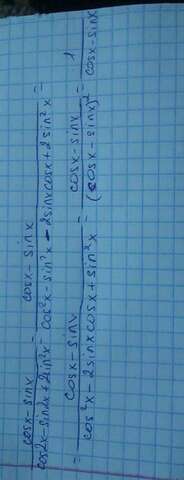 cosx-sinx / cos2x-sin2x+2sin²x = cosx-sinx / cos²x-sin²x-2sinxcosx+2sin²x =
= cosx-sinx / cos²x-2sinxcosx+sin²x = cosx-sinx / (cosx-sinx)² = 1 / cosx-sinx